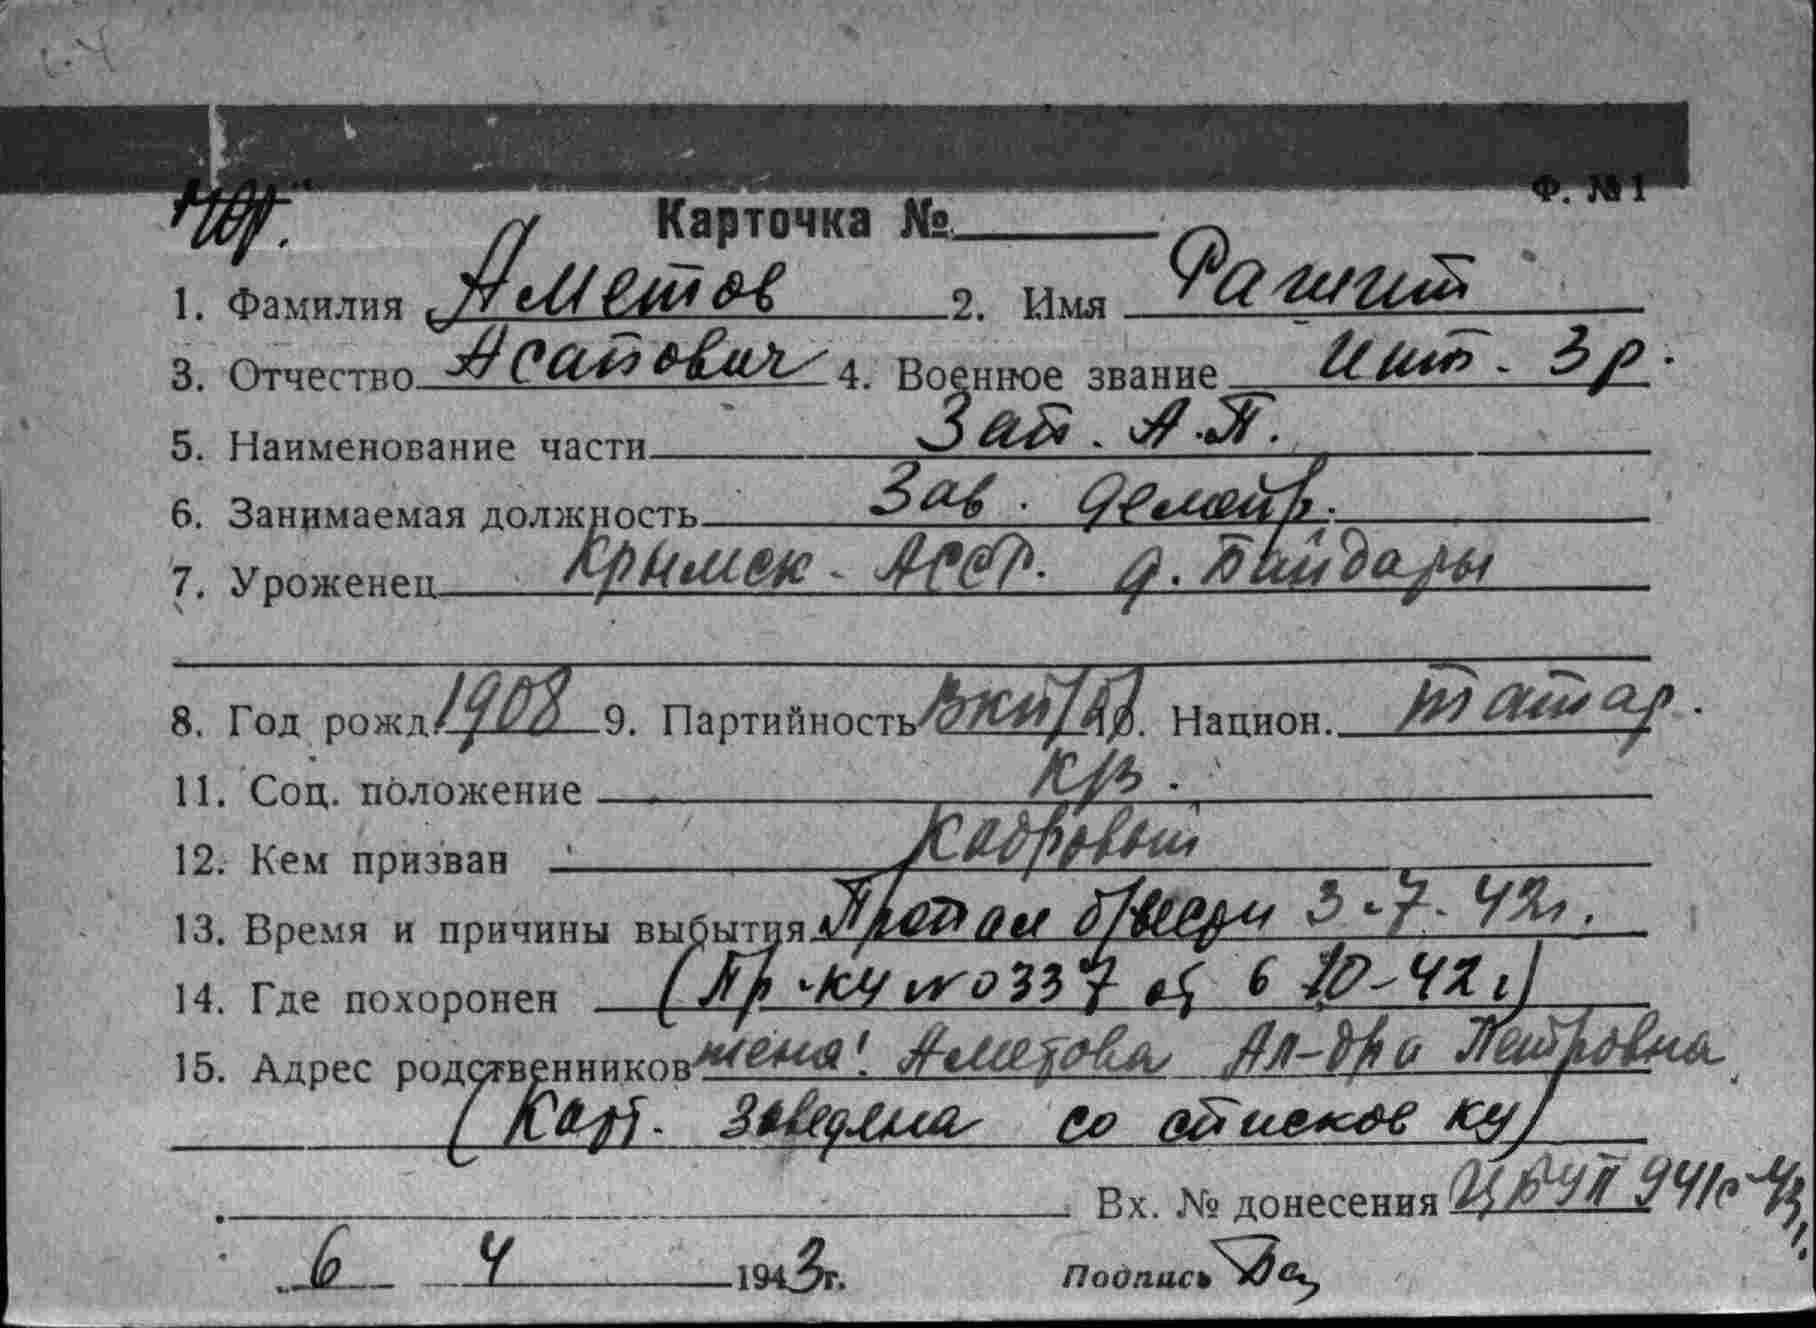 Ф. №1
Карточка №
1. Фамилия Аметов 2. Имя Рашит
3. Отчество Асапович 4. Военное звание Инт. 3 р.
5. Наименование части Зап. А.П.
6. Занимаемая должность Зав. делопр.
7. Уроженец Крымск. АССР. д. Байдары
8. Год рожд. 1908 9. Партийность ВКП/б/ 10. Национ. татар.
11. Соц. положение кр.
12. Кем призван Кадровый
13. Время и причины выбытия Пропал б/вести 3-7-42г.
14. Где похоронен (Пр. КУ №0337 от 6 10-42г)
15. Адрес родственников жена: Аметова Ал-дра Петровна
(Карт. заведена со списков КУ)
Вх. № донесения ЦБУП 941с-43
6 4 1943г. Подпись